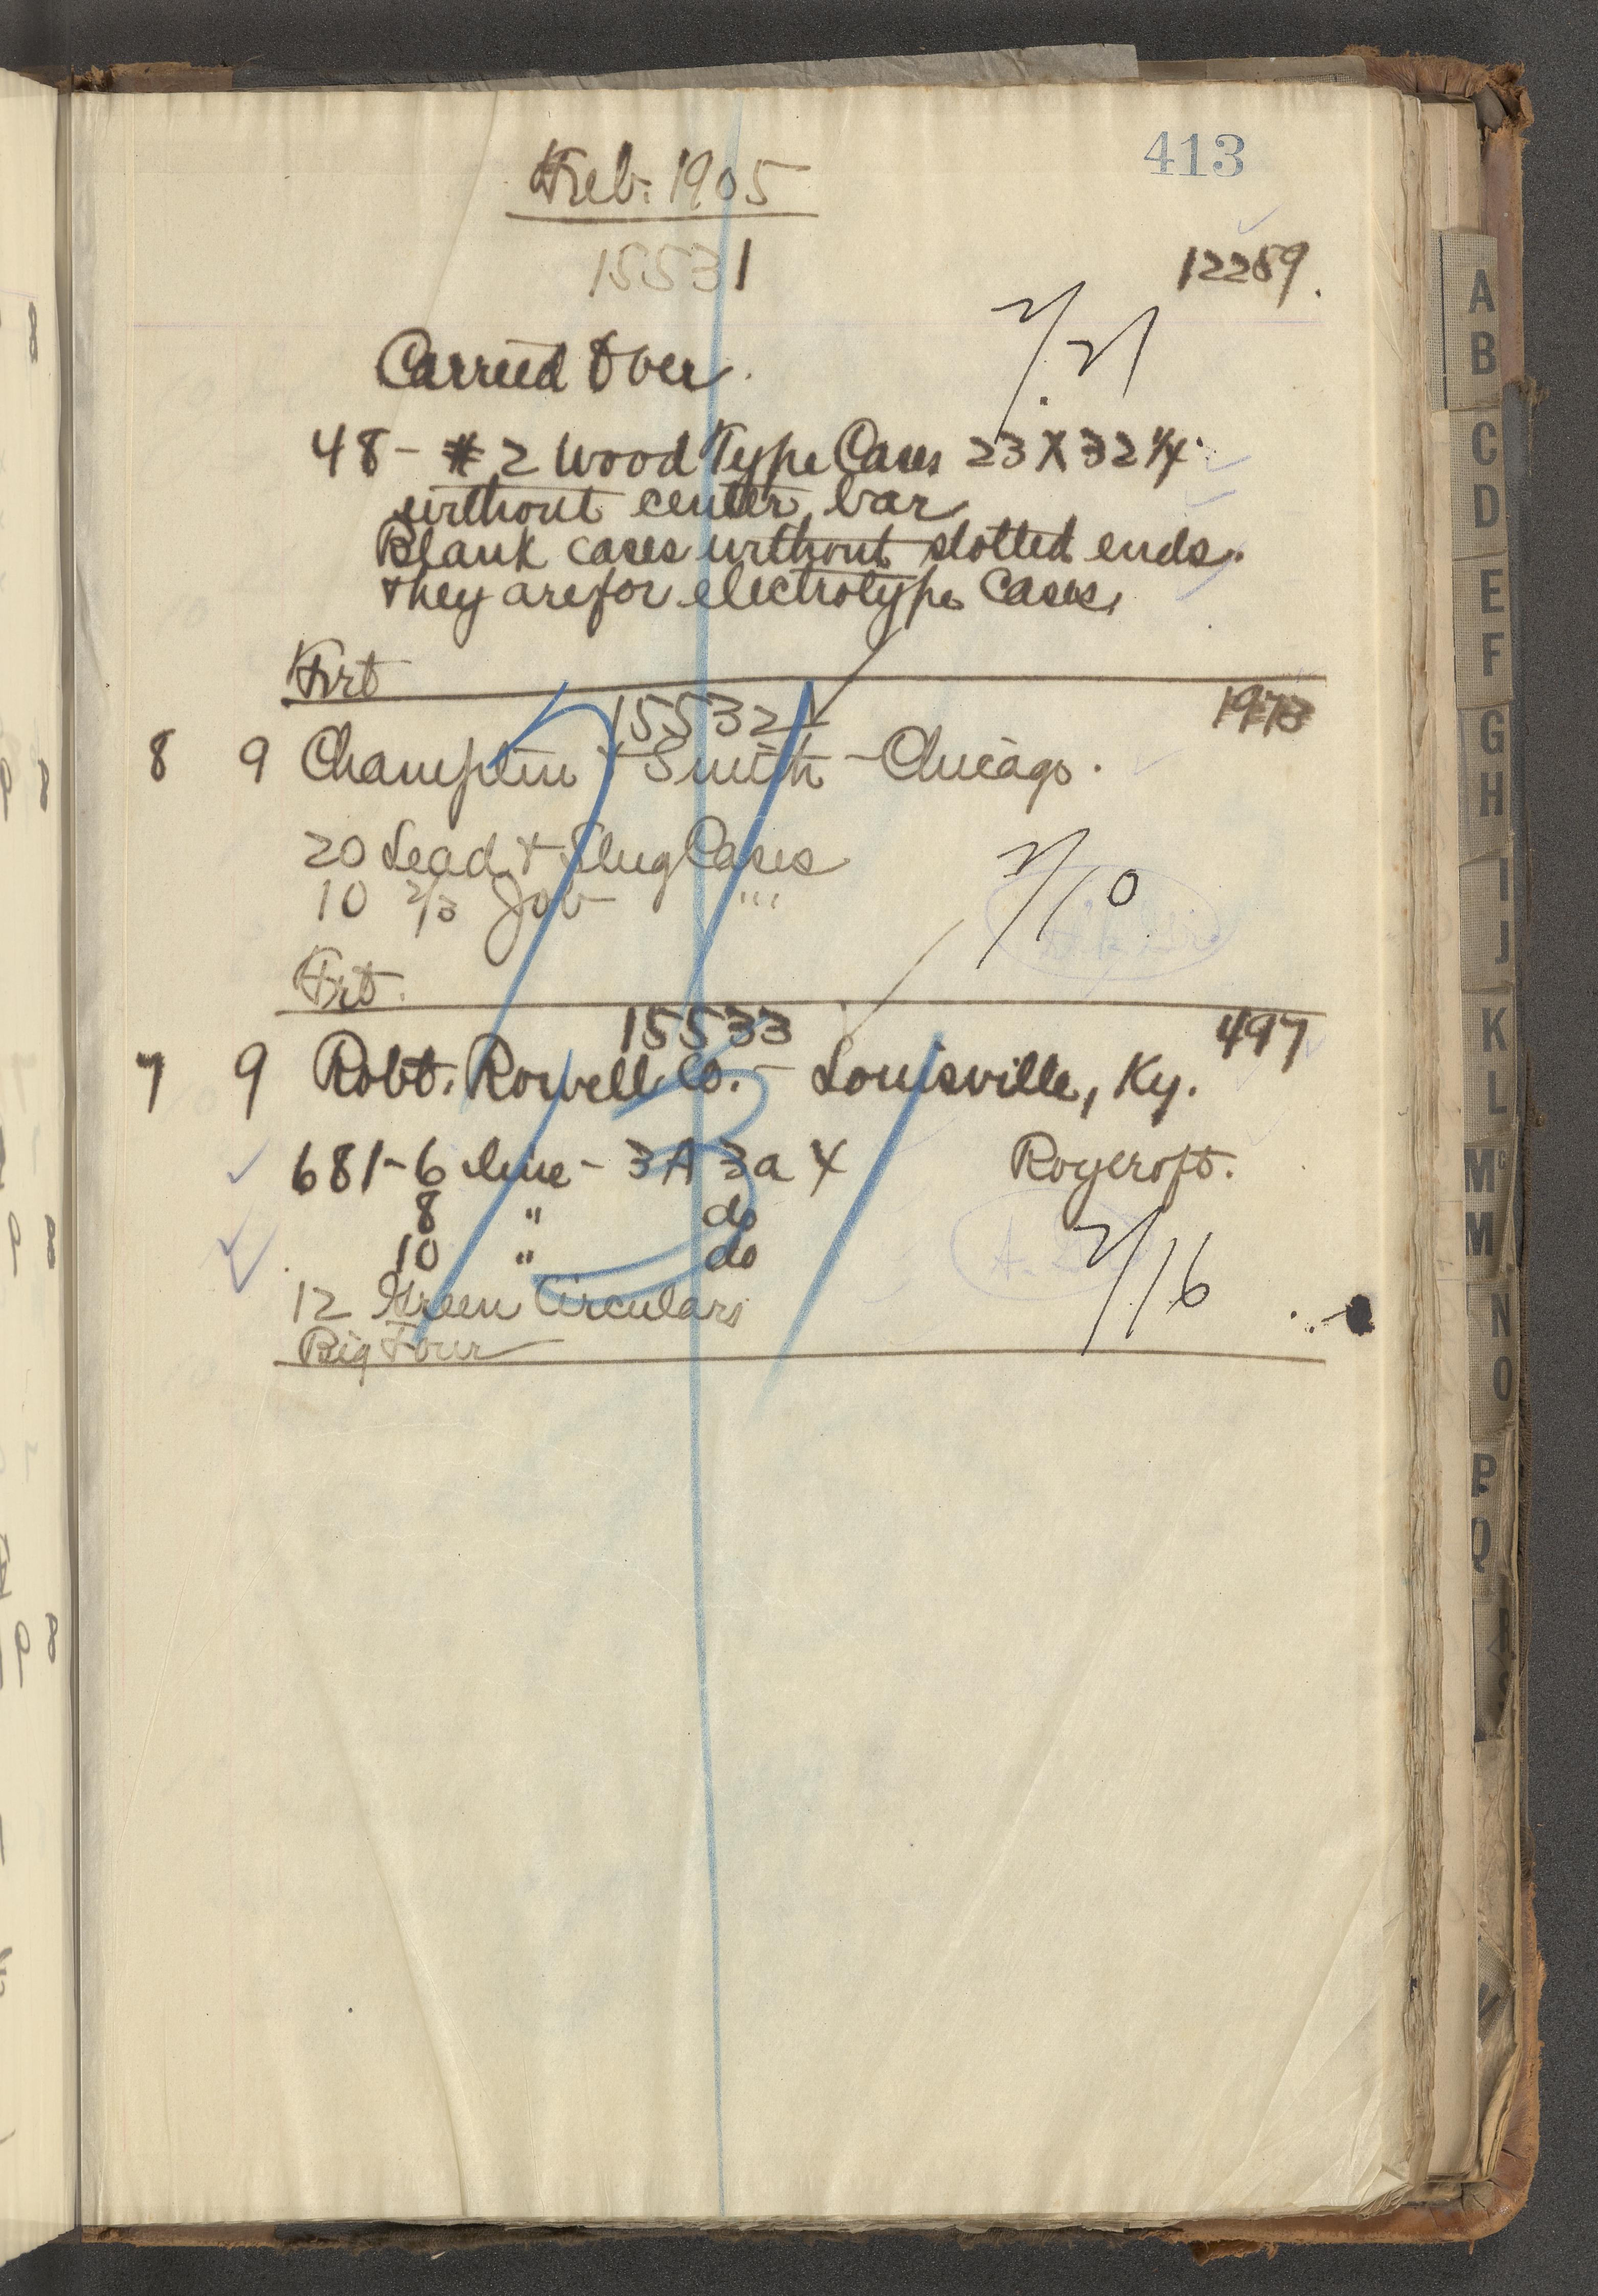 413
Feb. 1905
15531
12289.
2/21
Carried Over.
48 - # 2 Wood Type Cases 23 X 32 1/4
without center bar
Blank cases without slotted ends.
they are for electrotype Cases.
Frt
15532
1973
8 9 Champlin & Smith - Chicago.
20 Lead & Slug Cases
10 2/3 Job " "
2/10
Frt.
15533
497
7 9 Robt. Rowell Co. - Louisville, Ky.
681 - 6 line - 3A 3a X Roycroft.
8 " do
10 " do
2/16
12 Green Circulars
Big Four
A
B
C
D
E
F
G
H
I
J
K
L
Mc
M
N
O
P
Q
R